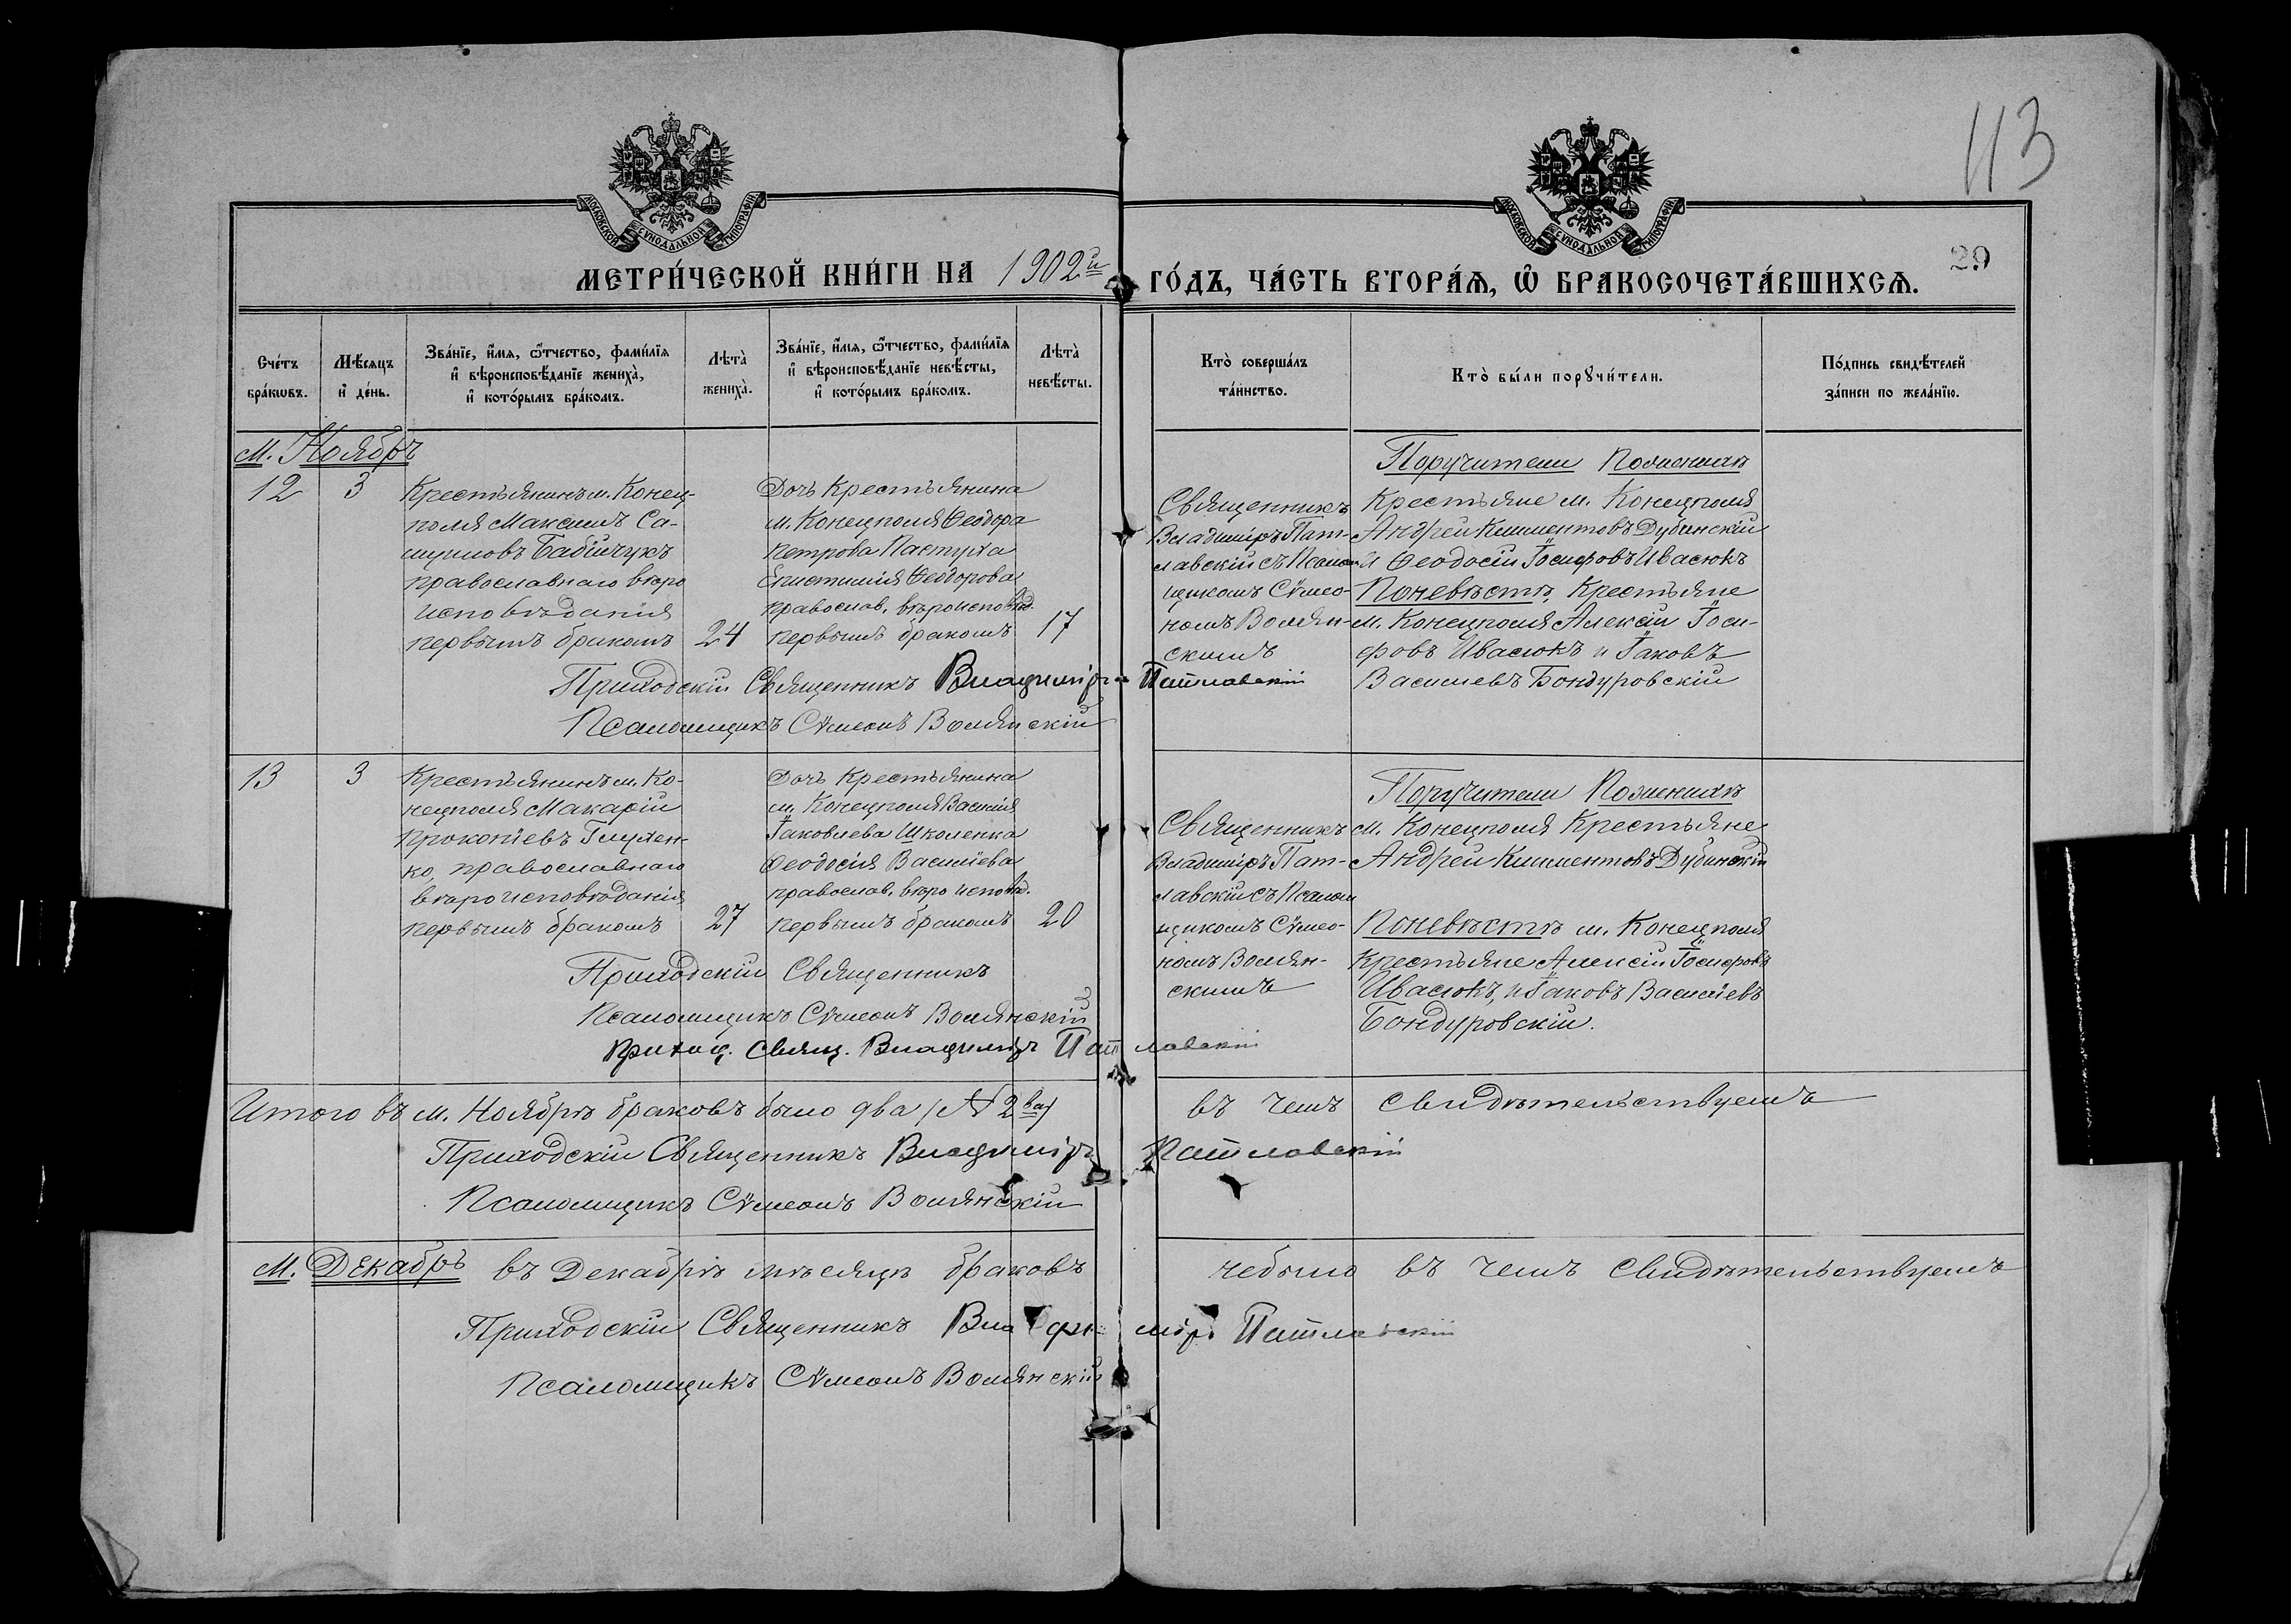 113
29
МОСКОВСКОЙ СѴНОДАЛЬНОЙ ТИПОГРАФІИ
МОСКОВСКОЙ СѴНОДАЛЬНОЙ ТИПОГРАФІИ
МЕТРИ́ЧЕСКОЙ КНИ́ГИ НА 1902й ГО́ДЪ, ЧА́СТЬ ВТОРА́Ѧ, Ѽ БРАКОСОЧЕТА́ВШИХСѦ.
Сче́тъ
бра́кѡвъ.
Мѣ́сяцъ
и҆ де́нь.
Зва́нїе, и҆́мѧ, ѻ҆́тчество, фами́лїѧ
и҆ вѣроисповѣ́данїе жениха̀,
и҆ кото́рымъ бра́комъ.
Лѣта̀
жениха̀.
Зва́нїе, и҆́мѧ, ѻ҆́тчество, фами́лїѧ
и҆ вѣроисповѣ́данїе невѣ́сты,
и҆ кото́рымъ бра́комъ.
Лѣта̀
невѣ́сты.
Кто̀ соверша́лъ
та́инство.
Кто̀ бы́ли порꙋчи́тели.
По́дпись свидѣ́телей
за́писи по жела́нїю.
М. Ноябрь
12
3
Крестьянинъ м. Конец-
поля Максимъ Са-
муиловъ Бабійчукъ
православнаго вѣро
исповѣданія
первымъ бракомъ
24
Дочь Крестьянина
м. Конецполя Ѳеодора
Петрова Пастуха
Епистимія Ѳеодорова
правослов. вѣроисповѣд.
первымъ бракомъ
17
Священникъ
Владиміръ Пат-
лавскій съ Псалом-
щикомъ Сѵмео-
номъ Волян-
скимъ
Поручители По женихѣ
Крестьяне м. Конецполя
Андрей Климентовъ Дубинскій
и Ѳеодосій Іосифовъ Ивасюкъ
По невѣстѣ Крестьяне
м. Конецполя Алексій Іоси-
фовъ Ивасюкъ и Іаковъ
Василіевъ Бондуровскій
Приходскій Священникъ Владиміръ Патлавскій
Псаломщикъ Сѵмеонъ Волянскій
13
3
Крестьянинъ м. Ко-
нецполя Макарій
Прокопіевъ Глущен-
ко, православнаго
вѣроисповѣданія
первымъ бракомъ
27
Дочь Крестьянина
м. Конецполя Василія
Іаковлева Школенка
Ѳеодосія Василіева
правослов. вѣроисповѣд.
первымъ бракомъ
20
Священникъ
Владиміръ Пат-
лавскій съ Псалом
щикомъ Сѵмео-
номъ Волян-
скимъ
Поручители По женихѣ
м. Конецполя Крестьяне
Андрей Климентовъ Дубинскій
По невѣстѣ м. Конецполя
Крестьяне Алексій Іосифовъ
Ивасюкъ, и Іаковъ Василіевъ
Бондуровскій.
Приходскій Священникъ
Псаломщикъ Сѵмеонъ Волянскій
Приход. Свящ. Владиміръ Патлавскій
Итого въ м. Ноябрѣ браковъ было два (№ 2ва) въ чемъ свидѣтельствуемъ
Приходскій Священникъ Владиміръ Патлавскій
Псаломщикъ Сѵмеонъ Волянскій
М. Декабрь въ Декабрѣ мѣсяцѣ браковъ небыло въ чемъ свидѣтельствуемъ
Приходскій Священникъ Владиміръ Патлавскій
Псаломщикъ Сѵмеонъ Волянскій